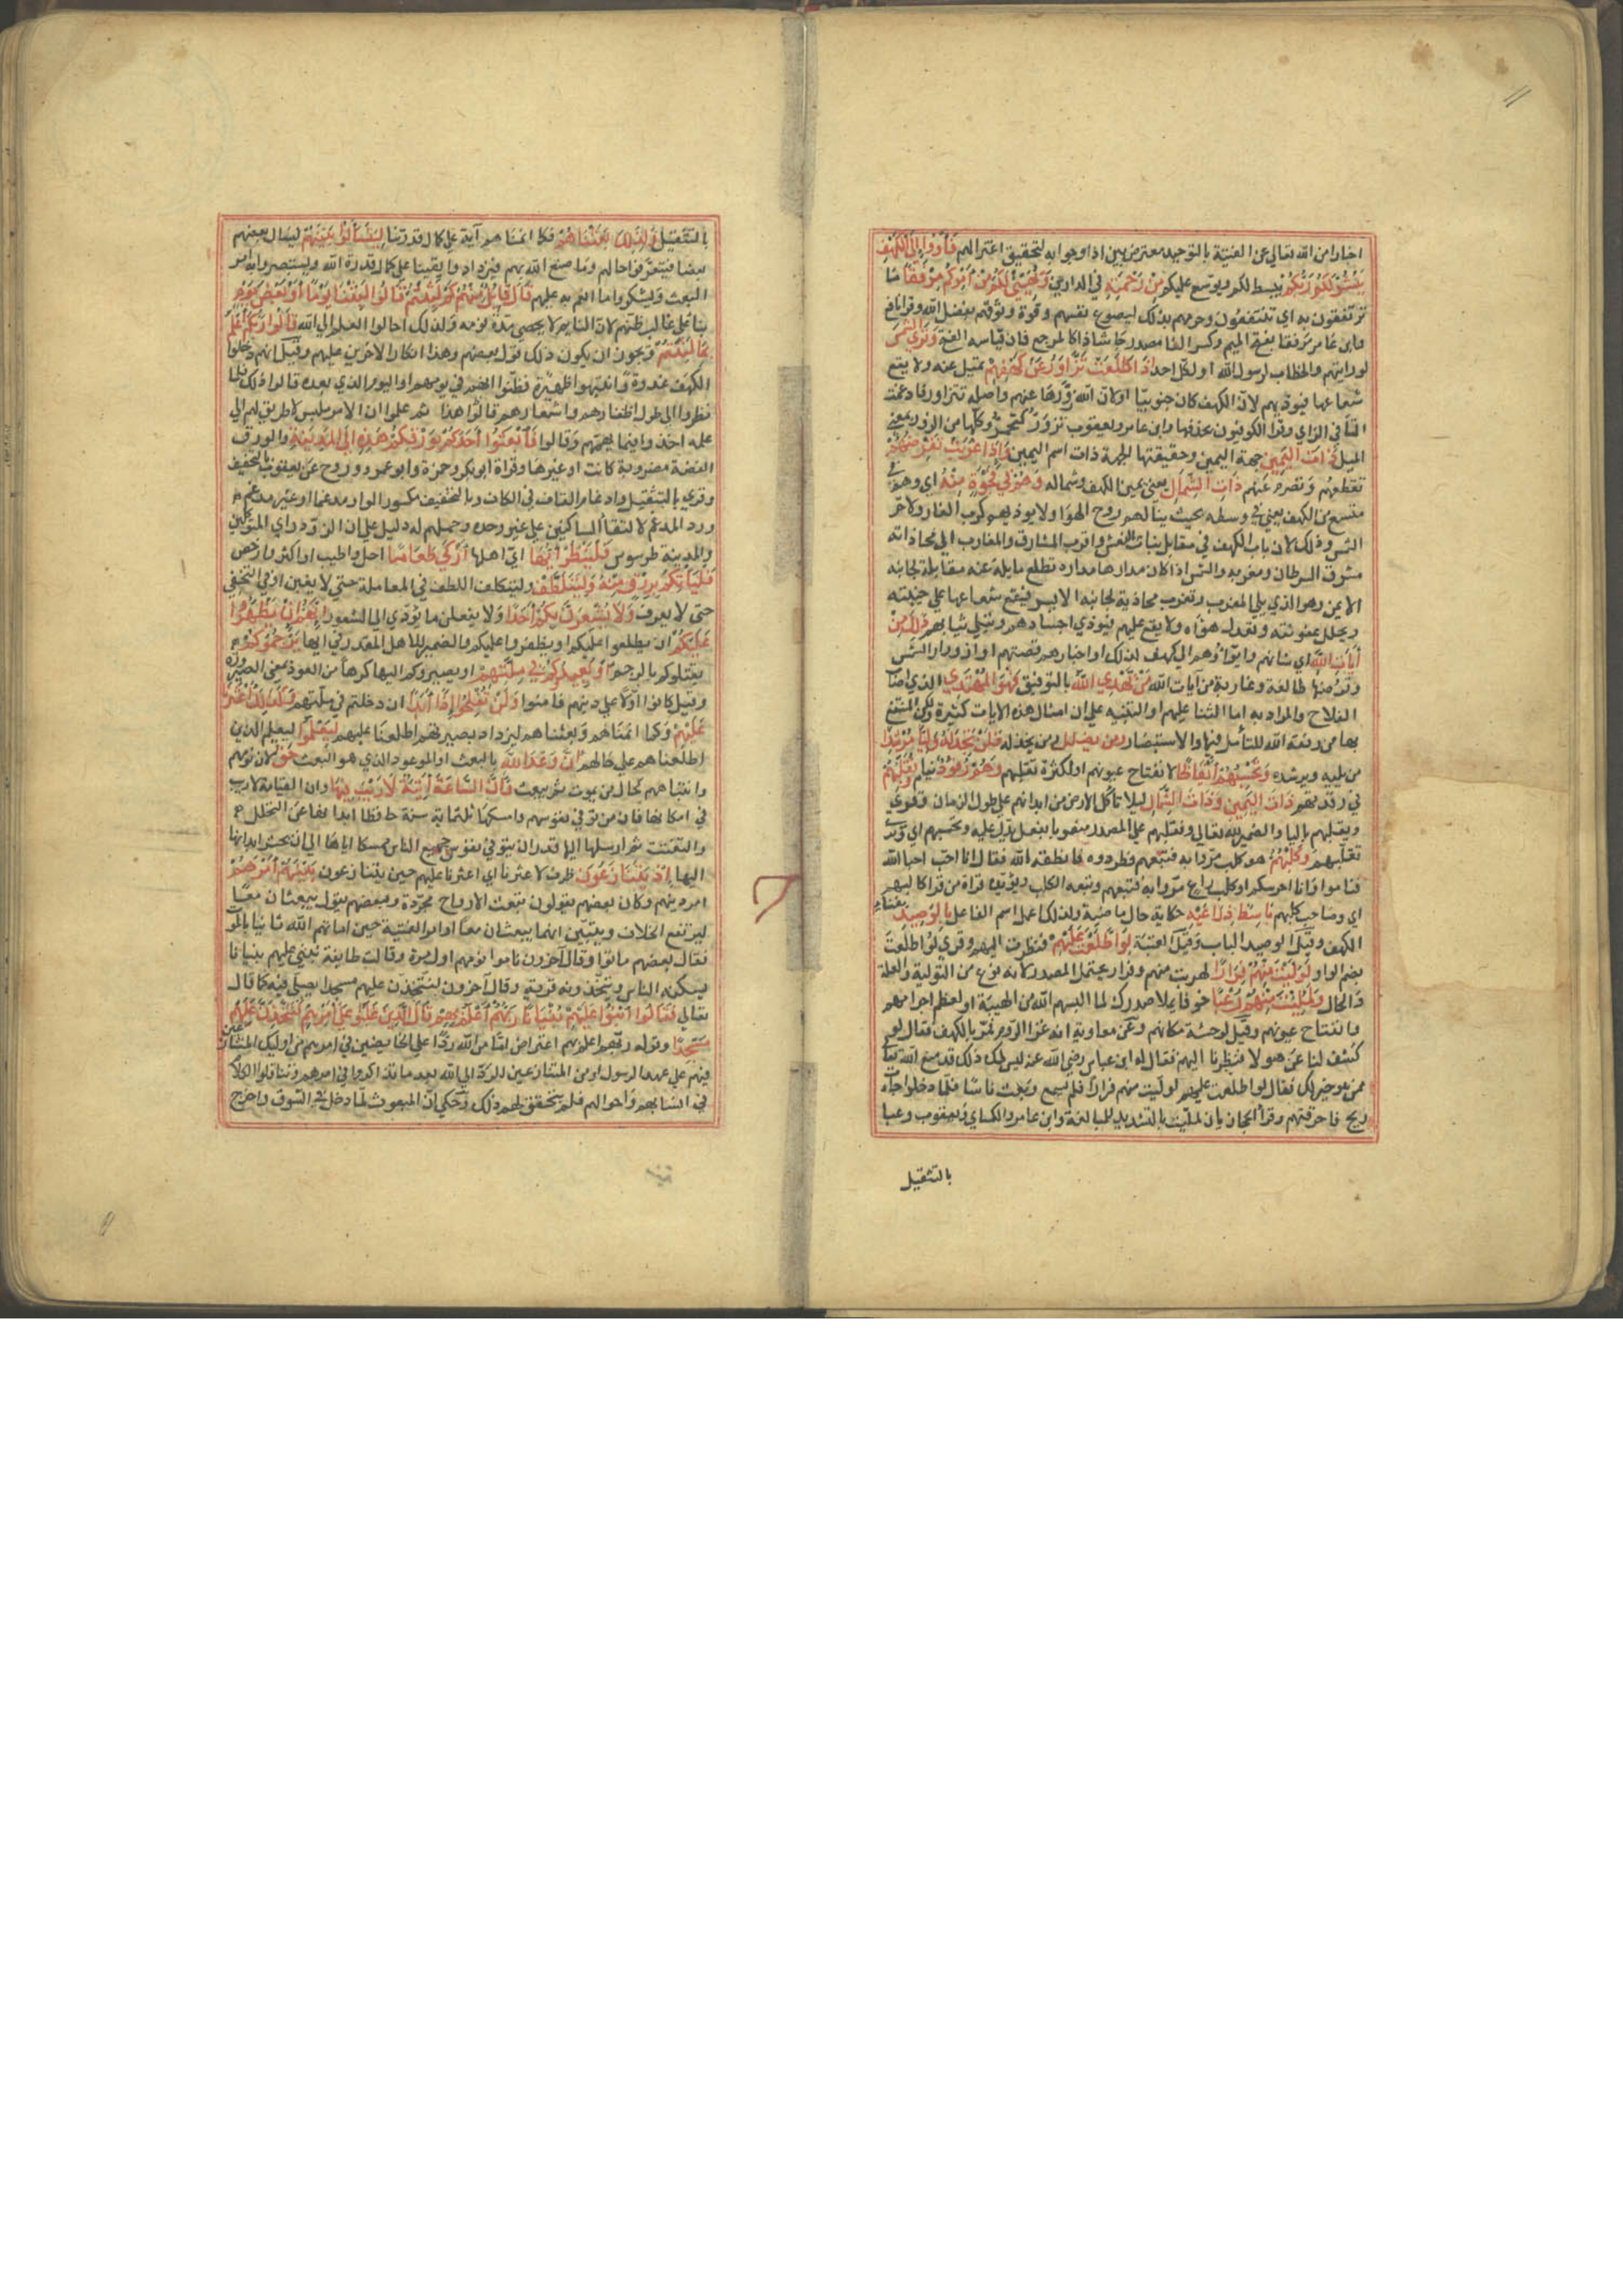 اخبارا من الله تعالى عن الفتية بالتوحيد معترض بين اذا وجوابه لتحقيق اعتزالهم فَأْوُوا إِلَى الْكَهْفِ
يَنْشُرْ لَكُمْ رَبُّكُمْ يبسط لكم ويوسع عليكم مِنْ رَحْمَتِهِ في الدارين وَيُهَيِّئْ لَكُمْ مِنْ أَمْرِكُمْ مِرْفَقًا ما
ترتفقون به اي تنتفعون وجزمهم بذلك لنصوع يقينهم وقوة وثوقهم بفضل الله وقرا نافع
وابن عامر مرفقا بفتح الميم وكسر الفا مصدر جا شاذا كالمرجع فان قياسه الفتح وَتَرَى الشَّمْسَ
لو رايتهم والخطاب لرسول الله او لكل احد إِذَا طَلَعَتْ تَزَاوَرُ عَنْ كَهْفِهِمْ تميل عنه ولا يقع
شعاعها فيوذيهم لان الكهف كان جنوبيا او لان الله زورها عنهم واصله تتزاور فادغمت
التا في الزاي وقرا الكوفيون بحذفها وابن عامر ويعقوب تزور كتحمر وكلها من الزور بمعنى
الميل ذَاتَ الْيَمِينِ جهة اليمين وحقيقتها الجهة ذات اسم اليمين وَإِذَا غَرَبَتْ تَقْرِضُهُمْ
تقطعهم وتصرم عنهم ذَاتَ الشِّمَالِ يعني يمين الكهف وشماله وَهُمْ فِي فَجْوَةٍ مِنْهُ اي وهم في
متسع من الكهف يعني في وسطه بحيث ينالهم روح الهوا ولا يوذيهم كرب الغار ولا حر
الشمس وذلك لان باب الكهف في مقابل بنات النعش واقرب المشارق والمغارب الى محاذاته
مشرق السرطان ومغربه والشمس اذا كان مدارها مداره تطلع مايلة عنه مقابلة لجانبه
الايمن وهو الذي يلي المغرب وتغرب محاذية لجانبه الايسر فيقع شعاعها على جنبيه
ويحلل عفونته ويعدل هواه ولا يقع عليهم فيوذي اجسادهم ويبلي ثيابهم ذَلِكَ مِنْ
آيَاتِ اللَّهِ اي شانهم وايواؤهم الى كهف كذلك او اخبارهم قصتهم او ازورار الشمس
وقرضها طالعة وغاربة من آيات الله مَنْ يَهْدِي اللَّهُ بالتوفيق فَهُوَ الْمُهْتَدِي الذي اصاب
الفلاح والمراد به اما الثنا عليهم او التنبيه على ان امثال هذه الايات كثيرة ولكن المنتفع
بها من وفقه الله للتأمل فيها والاستبصار وَمَنْ يُضْلِلْ ومن يخذله فَلَنْ تَجِدَ لَهُ وَلِيًّا مُرْشِدًا
من يليه ويرشده وَتَحْسَبُهُمْ أَيْقَاظًا لانفتاح عيونهم او لكثرة تقلبهم وَهُمْ رُقُودٌ نيام وَنُقَلِّبُهُمْ
في رقدتهم ذَاتَ الْيَمِينِ وَذَاتَ الشِّمَالِ ليلا تأكل الارض من ابدانهم على طول الزمان وقري
ويقلبهم باليا والضمير لله تعالى وتقلبهم على المصدر منصوبا بفعل يدل عليه وتحسبهم اي وترى
تقلبهم وَكَلْبُهُمْ هو كلب مروا به فتبعهم فطردوه فانطقه الله فقال انا احب احبا الله
فناموا وانا احرسكم او كلب راع مروا به فتبعهم وتبعه الكلب ويؤيده قراة من قرا كالبهم
اي وصاحب كلبهم بَاسِطٌ ذِرَاعَيْهِ حكاية حال ماضية ولذلك اعمل اسم الفاعل بِالْوَصِيدِ بفناء
الكهف وقيل الوصيد الباب وقيل العتبة لَوِ اطَّلَعْتَ عَلَيْهِمْ فنظرت اليهم وقري لو اطلعت
بضم الواو لَوَلَّيْتَ مِنْهُمْ فِرَارًا لهربت منهم وفرارا يحتمل المصدر لانه نوع من التولية والعلة
والحال وَلَمُلِئْتَ مِنْهُمْ رُعْبًا خوفا يملا صدرك لما البسهم الله من الهيبة او لعظم اجرامهم
وانفتاح عيونهم وقيل لوحشة مكانهم وعن معاوية انه غزا الروم فمر بالكهف فقال لو
كشف لنا عن هولا فنظرنا اليهم فقال له ابن عباس رضي الله عنه ليس لك ذلك قد منع الله تعالى
من هو خير منك فقال لو اطلعت عليهم لوليت منهم فرارا فلم يسمع وبعث ناسا فلما دخلوا جات
ريح فاحرقتهم وقرا الحجازيان لملئت بالتشديد للمبالغة وابن عامر والكساي ويعقوب رعبا
بالتثقيل
بالتثقيل وَكَذَلِكَ بَعَثْنَاهُمْ وكما انمناهم آية على كمال قدرتنا لِيَتَسَاءَلُوا بَيْنَهُمْ ليسال بعضهم
بعضا فيتعرفوا حالهم وما صنع الله بهم فيزدادوا يقينا على كمال قدرة الله ويستبصروا به امر
البعث ويشكروا ما انعم به عليهم قَالَ قَائِلٌ مِنْهُمْ كَمْ لَبِثْتُمْ قَالُوا لَبِثْنَا يَوْمًا أَوْ بَعْضَ يَوْمٍ
بنا على غالب ظنهم لان النايم لا يحصي مدة نومه ولذلك احالوا العلم الى الله قَالُوا رَبُّكُمْ أَعْلَمُ
بِمَا لَبِثْتُمْ ويجوز ان يكون ذلك قول بعضهم وهذا انكار الاخرين عليهم وقيل انهم دخلوا
الكهف غدوة وانتبهوا ظهيرة فظنوا انهم في يومهم او اليوم الذي بعده قالوا ذلك فلما
نظروا الى طول اظفارهم واشعارهم قالوا هذا ثم علموا ان الامر ملبس لا طريق لهم الى
علمه اخذوا فيما يهمهم وقالوا فَابْعَثُوا أَحَدَكُمْ بِوَرِقِكُمْ هَذِهِ إِلَى الْمَدِينَةِ والورق
الفضة مضروبة كانت او غيرها وقراة ابو بكر وحمزة وابو عمرو وروح عن يعقوب بالتخفيف
وقري بالتثقيل وادغام القاف في الكاف وبالتخفيف مكسور الواو مدغما او غير مدغم
ورد المدغم لالتقا الساكنين على غير حده وحملهم له دليل على ان التزود راي المتوكلين
والمدينة طرسوس فَلْيَنْظُرْ أَيُّهَا اي اهلها أَزْكَى طَعَامًا احل واطيب او اكثر وارخص
فَلْيَأْتِكُمْ بِرِزْقٍ مِنْهُ وَلْيَتَلَطَّفْ وليتكلف اللطف في المعاملة حتى لا يغبن او في التخفي
حتى لا يعرف وَلَا يُشْعِرَنَّ بِكُمْ أَحَدًا ولا يفعلن ما يؤدي الى الشعور إِنَّهُمْ إِنْ يَظْهَرُوا
عَلَيْكُمْ ان يطلعوا عليكم او يظفروا عليكم والضمير للاهل المقدر في ايها يَرْجُمُوكُمْ
يقتلوكم بالرجم أَوْ يُعِيدُوكُمْ فِي مِلَّتِهِمْ او يصيروكم اليها كرها من العود بمعنى الصيرورة
وقيل كانوا اولا على دينهم فامنوا وَلَنْ تُفْلِحُوا إِذًا أَبَدًا ان دخلتم في ملتهم وَكَذَلِكَ أَعْثَرْنَا
عَلَيْهِمْ وكما انمناهم وبعثناهم ليزداد بصيرتهم اطلعنا عليهم لِيَعْلَمُوا ليعلم الذين
اطلعناهم على حالهم أَنَّ وَعْدَ اللَّهِ بالبعث او الموعود الذي هو البعث حَقٌّ لان نومهم
وانتباههم كحال من يموت ثم يبعث وَأَنَّ السَّاعَةَ آتِيَةٌ لَا رَيْبَ فِيهَا وان القيامة لا ريب
في امكانها فان من توفى نفوسهم وامسكها ثلثماية سنة حافظا ابدانها عن التحلل
والتفتت ثم ارسلها اليها قدر ان يتوفى نفوس جميع الناس ممسكا اياها الى ان يحشر ابدانها
اليها إِذْ يَتَنَازَعُونَ ظرف لاعثرنا اي اعثرنا عليهم حين يتنازعون بَيْنَهُمْ أَمْرَهُمْ
امر دينهم وكان بعضهم يقولون تبعث الارواح مجردة وبعضهم يقول يبعثان معا
ليرتفع الخلاف ويتبين انهما يبعثان معا او امر الفتية حين اماتهم الله ثانيا بالموت
فقال بعضهم ماتوا وقال آخرون ناموا نومهم اول مرة وقالت طايفة نبني عليهم بنيانا
يسكنه الناس ويتخذونه قرية وقال آخرون لنتخذن عليهم مسجدا يصلى فيه كما قال
تعالى فَقَالُوا ابْنُوا عَلَيْهِمْ بُنْيَانًا رَبُّهُمْ أَعْلَمُ بِهِمْ قَالَ الَّذِينَ غَلَبُوا عَلَى أَمْرِهِمْ لَنَتَّخِذَنَّ عَلَيْهِمْ
مَسْجِدًا وقوله ربهم اعلم بهم اعتراض اما من الله ردا على الخايضين في امرهم من اوليك المتنازعين
فيهم على عهد الرسول او من المتنازعين للرد الى الله بعد ما تذاكروا في امرهم وتناقلوا الكلام
في انسابهم واحوالهم فلم يتحقق لهم ذلك وحكي ان المبعوث لما دخل السوق واخرج